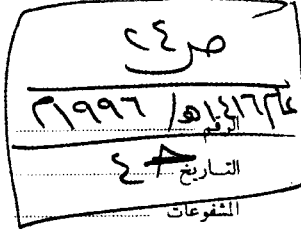 ص ٢٤
عام ١٤١٦هـ / ١٩٩٦م
الرقم
التاريخ
المشفوعات